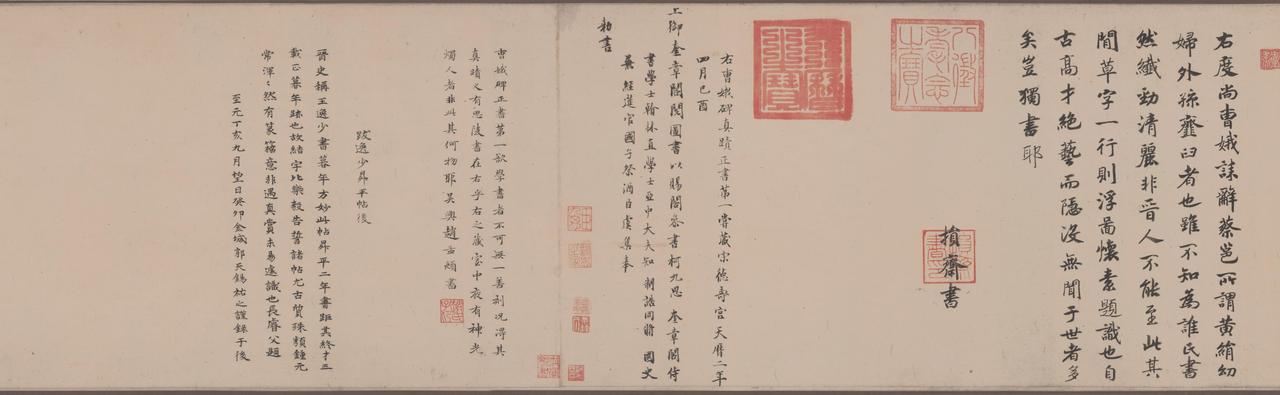 右度尚曹娥誄辭蔡邕所謂黃絹幼
婦外孫齏臼者也雖不知為誰氏書
然纖勁清麗非晉人不能至此其
間草字一行則浮啚懷素題識也自
古高才絕藝而隱沒無聞于世者多
矣豈獨書耶
損齋書
右曹娥碑真蹟正書第一嘗藏宗德壽宮天曆二年
四月己酉
上御奎章閣閱圖書以賜閣參書柯九思 奎章閣侍
書學士翰林直學士亞中大夫知 制誥同脩 國史
兼 經筵官國子祭酒臣虞集奉
勑書
曹娥碑正書第一欲學書者不可無一善刻况得其
真蹟又有思陵書在右乎右之藏室中夜有神光
燭人者非此其何物耶吳興趙孟頫書
跋逸少昇平帖後
晉史稱王逸少書暮年方妙此帖昇平二年書距其終才三
載正暮年跡也故結字比樂毅告誓諸帖尤古質殊類鍾元
常渾〻然有篆籀意非遇真賞未易遽識也長睿父題
至元丁亥九月望日癸卯金城郭天錫祐之謹錄于後
天曆之寶